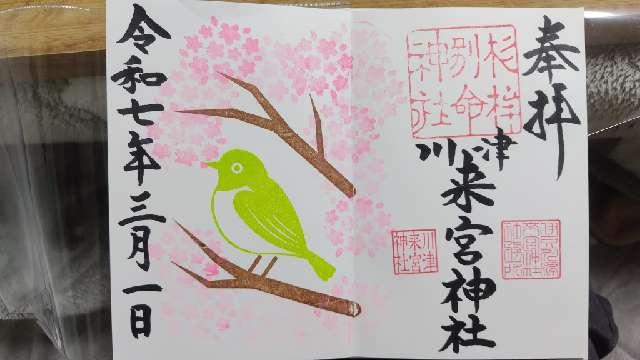 奉拝
杉桙
別命
神社
川津
来宮神社
川津
来宮
神社
令和七年三月一日